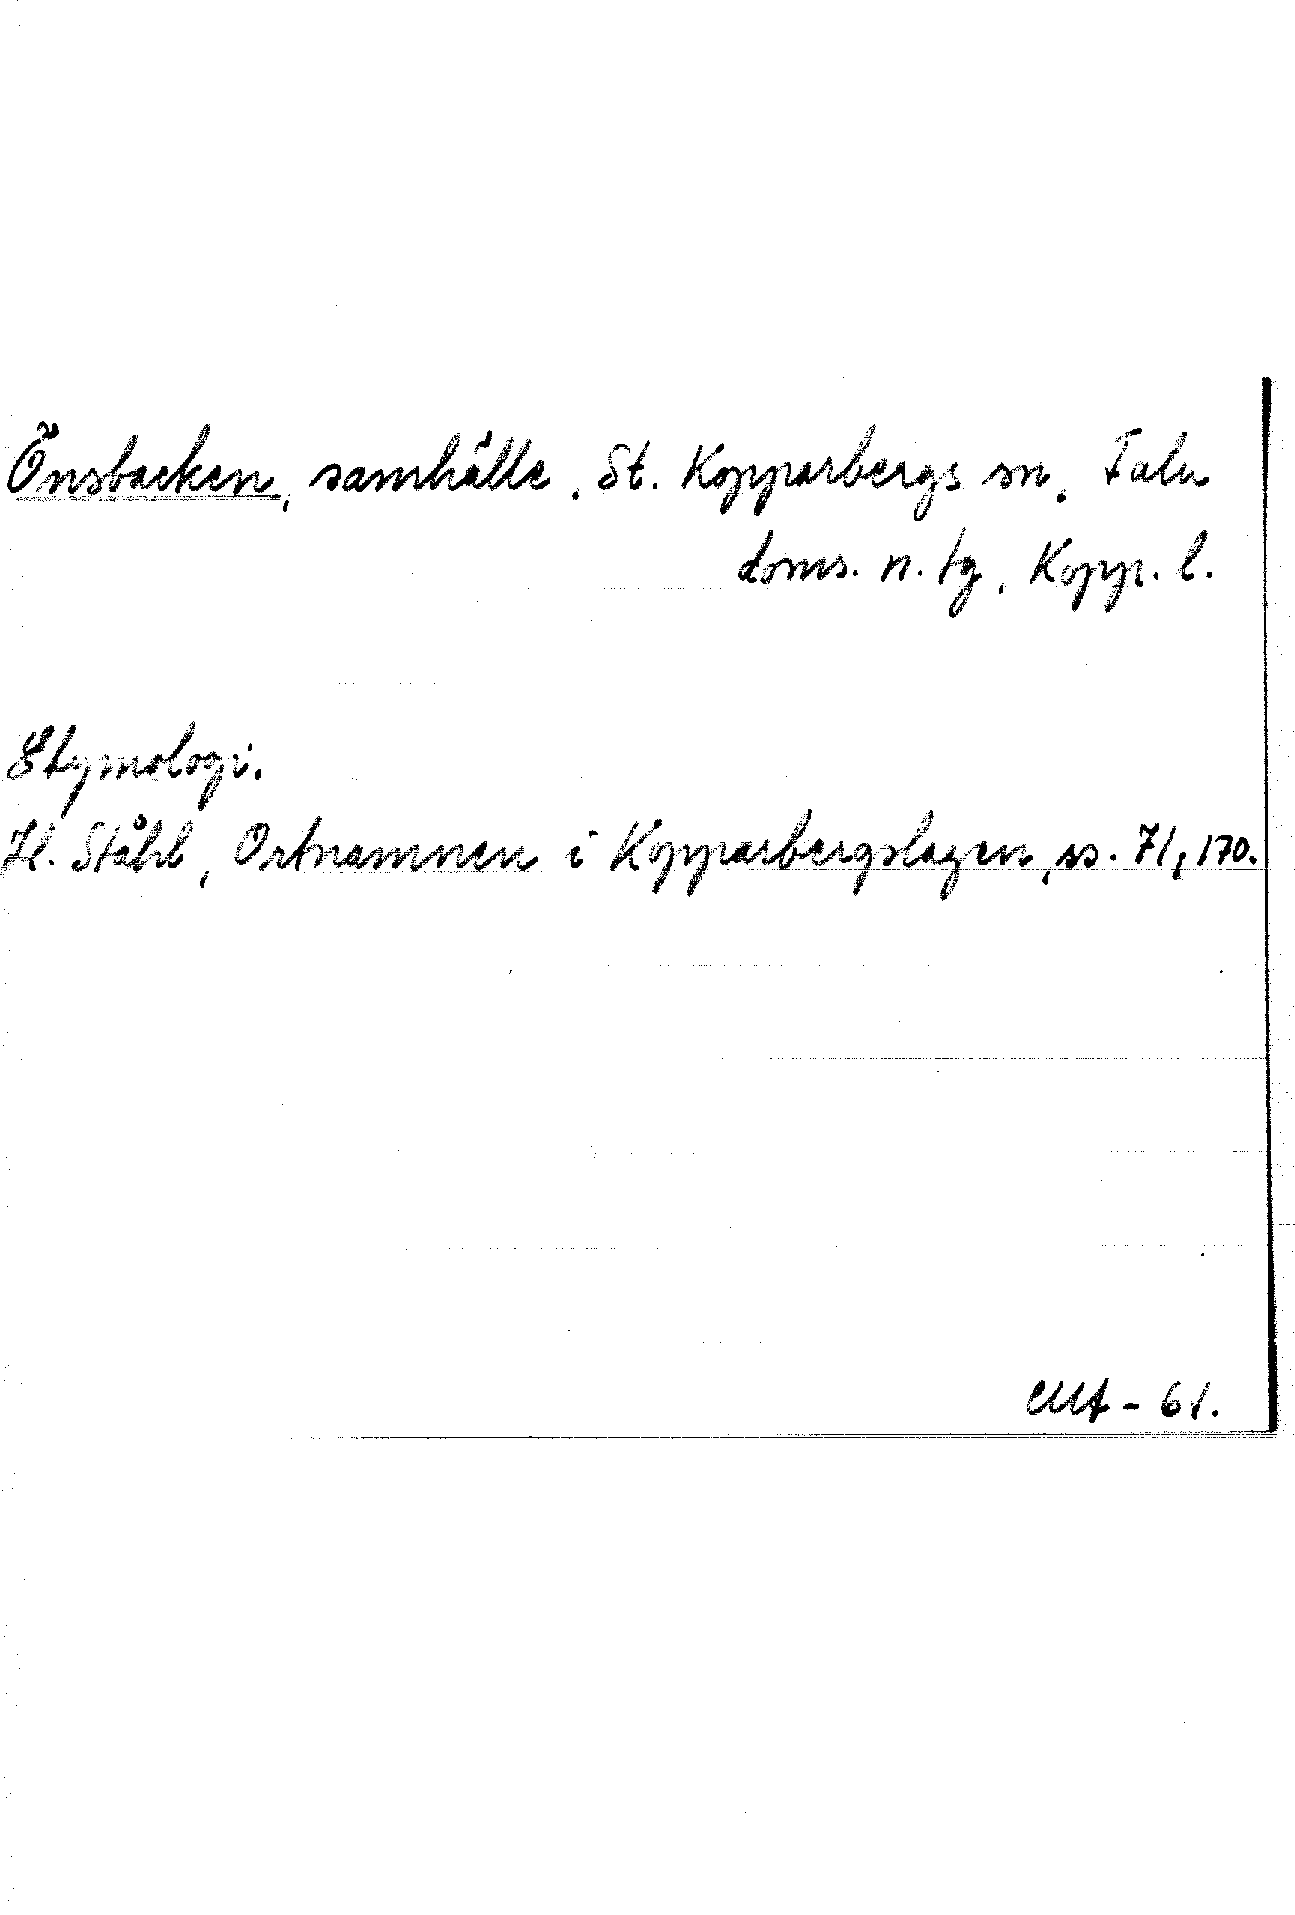 Önsbacken, samhälle, St. Kopparbergs sn, Falu
doms. n. tg, Kopp. l.
Etymologi.
H. Ståhl, Ortnamnen i Kopparbergslagen, ss. 71, 170.
- 61.